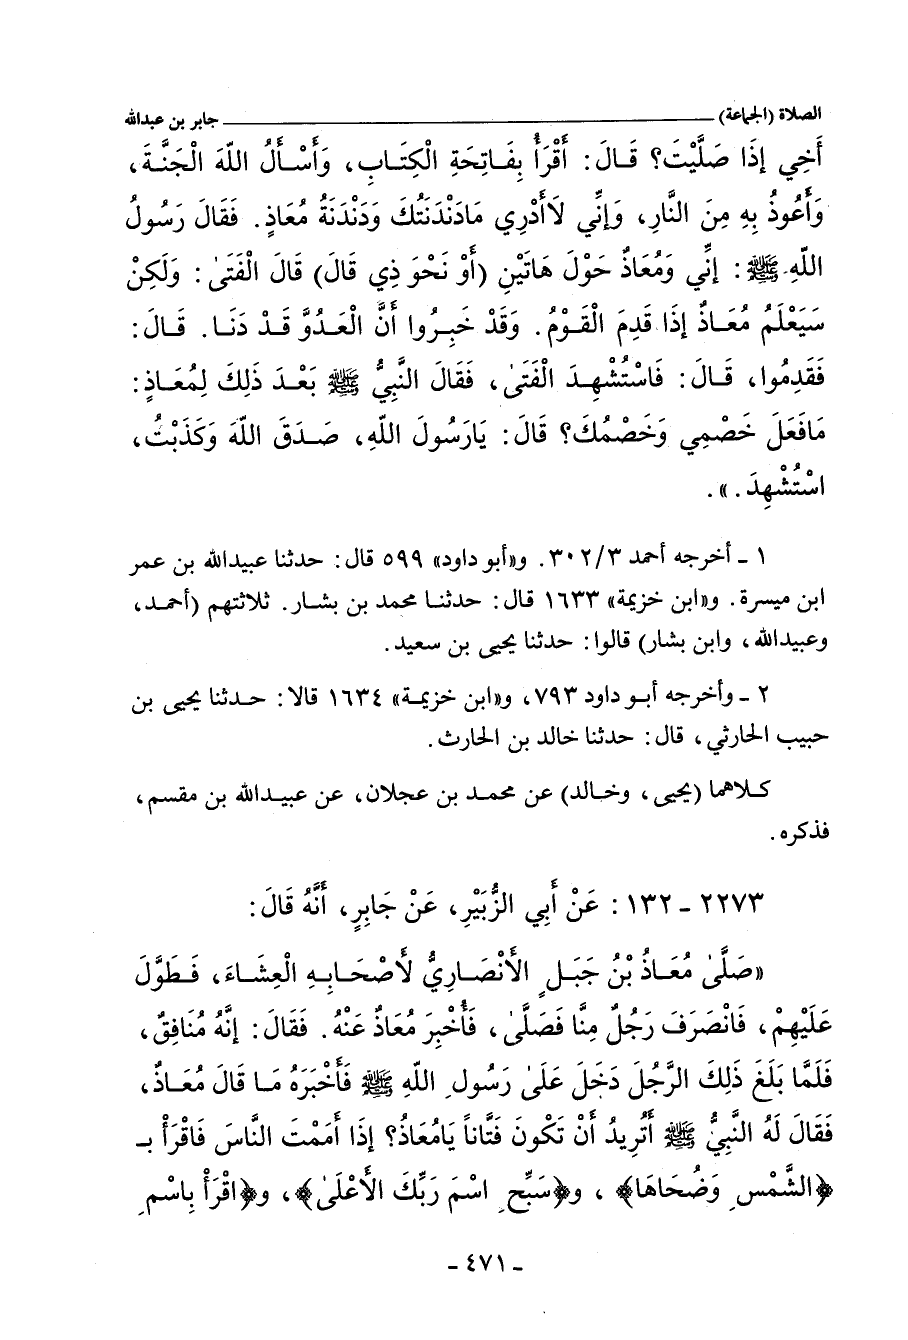 الصلاة (الجماعة) ــــــــــــــــــــ جابر بن عبدالله
أَخِي إِذَا صَلَّيْتَ؟ قَالَ: أَقْرَأُ بِفَاتِحَةِ الْكِتَابِ، وَأَسْأَلُ اللّهَ الْجَنَّةَ،
وَأَعُوذُ بِهِ مِنَ النَّارِ، وَإِنِّي لَاأَدْرِي مَادَنْدَنَتُكَ وَدَنْدَنَةُ مُعَاذٍ. فَقَالَ رَسُولُ
اللّهِ ﷺ: إِنِّي وَمُعَاذٌ حَوْلَ هَاتَيْنِ (أَوْ نَحْوَ ذِي قَالَ) قَالَ الْفَتَىٰ: وَلَكِنْ
سَيَعْلَمُ مُعَاذٌ إِذَا قَدِمَ الْقَوْمُ. وَقَدْ خَبِرُوا أَنَّ الْعَدُوَّ قَدْ دَنَا. قَالَ:
فَقَدِمُوا، قَالَ: فَاسْتُشْهِدَ الْفَتَىٰ، فَقَالَ النَّبِيُّ ﷺ بَعْدَ ذَلِكَ لِمُعَاذٍ:
مَافَعَلَ خَصْمِي وَخَصْمُكَ؟ قَالَ: يَارَسُولَ اللّهِ، صَدَقَ اللّهَ وَكَذَبْتُ،
اسْتُشْهِدَ.».
١ ـ أخرجه أحمد ٣٠٢/٣. و«أبو داود» ٥٩٩ قال: حدثنا عبيدالله بن عمر
ابن ميسرة. و«ابن خزيمة» ١٦٣٣ قال: حدثنا محمد بن بشار. ثلاثتهم (أحمد،
وعبيدالله، وابن بشار) قالوا: حدثنا يحيى بن سعيد.
٢ ـ وأخرجه أبو داود ٧٩٣، و«ابن خزيمة» ١٦٣٤ قالا: حدثنا يحيى بن
حبيب الحارثي، قال: حدثنا خالد بن الحارث.
كلاهما (يحيى، وخالد) عن محمد بن عجلان، عن عبيدالله بن مقسم،
فذكره.
٢٢٧٣ ـ ١٣٢: عَنْ أَبِي الزُّبَيْرِ، عَنْ جَابِرٍ، أَنَّهُ قَالَ:
«صَلَّىٰ مُعَاذُ بْنُ جَبَلٍ الأَنْصَارِيُّ لأَصْحَابِهِ الْعِشَاءَ، فَطَوَّلَ
عَلَيْهِمْ، فَانْصَرَفَ رَجُلٌ مِنَّا فَصَلَّىٰ، فَأُخْبِرَ مُعَاذٌ عَنْهُ. فَقَالَ: إِنَّهُ مُنَافِقٌ،
فَلَمَّا بَلَغَ ذَلِكَ الرَّجُلَ دَخَلَ عَلَىٰ رَسُولِ اللّهِ ﷺ فَأَخْبَرَهُ مَا قَالَ مُعَاذٌ،
فَقَالَ لَهُ النَّبِيُّ ﷺ أَتُرِيدُ أَنْ تَكُونَ فَتَّاناً يَامُعَاذُ؟ إِذَا أَمَمْتَ النَّاسَ فَاقْرَأْ بـ
﴿الشَّمْسِ وَضُحَاهَا﴾، و﴿سَبِّحِ اسْمَ رَبِّكَ الأَعْلَىٰ﴾، و﴿اقْرَأْ بِاسْمِ
ـ ٤٧١ ـ